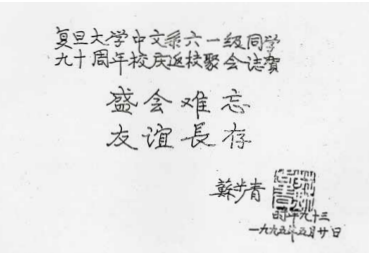 复旦大学中文系六一级同学
九十周年校庆返校聚会志贺
盛会难忘
友谊長存
蘇步青
时年九十三
一九九五年五月廿日